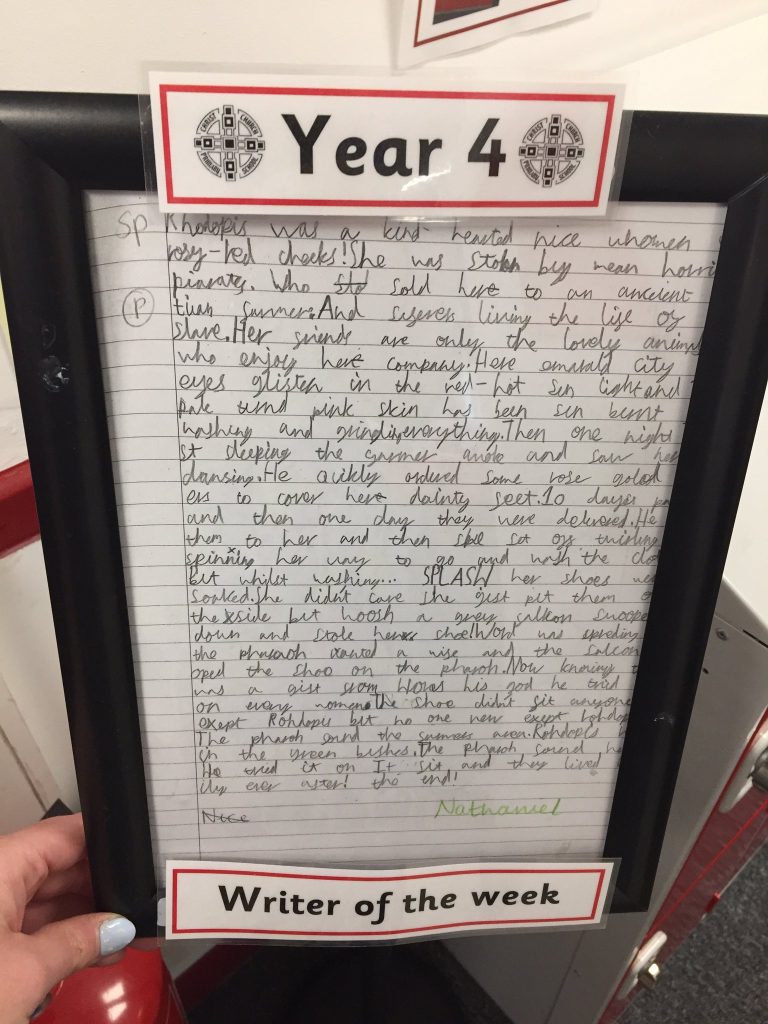 Year 4
CHRIST CHURCH
PRIMARY SCHOOL
CHRIST CHURCH
PRIMARY SCHOOL
Sp Rhodopis was a kind hearted nice whomen
rosy-red cheeks! She was stoln by mean horri
piarats. Who sold here to an ancient
tian farmer. And suffers living the life of
slave. Her friends are only the lovely anim
P
who enjoy here company. Here emarald city
eyes glisten in the red-hot sun light and
pale pink skin has been sun burnt
washing and grinding everything. Then one night
st sleeping the farmer awoke and saw her
dansing. He qickly ordered some rose golod
ers to cover here dainty feet. 10 days pa
and then one day they were delivered. He
them to her and then she set off twirling
spinning her way to go and wash the clo
But whilst washing... SPLASH her shoes we
soaked. She didnt care she just put them o
the side but woosh a grey falkon swoope
down and stole her shoe! Word was spreding
the pharaoh wanted a wife and the falcon
pped the shoe on the pharoh. Now knowing t
was a gift from Horas his god he tried
on every women. The shoe didnt fit anyone
exept Rohdopis but no one new exept Rohdop
The pharoh found the farmers area. Rohdopis h
in the green bushes. The pharoh found he
He tried it on It fit and they lived
ily ever after! the end!
Nice
Nathaniel
Writer of the week